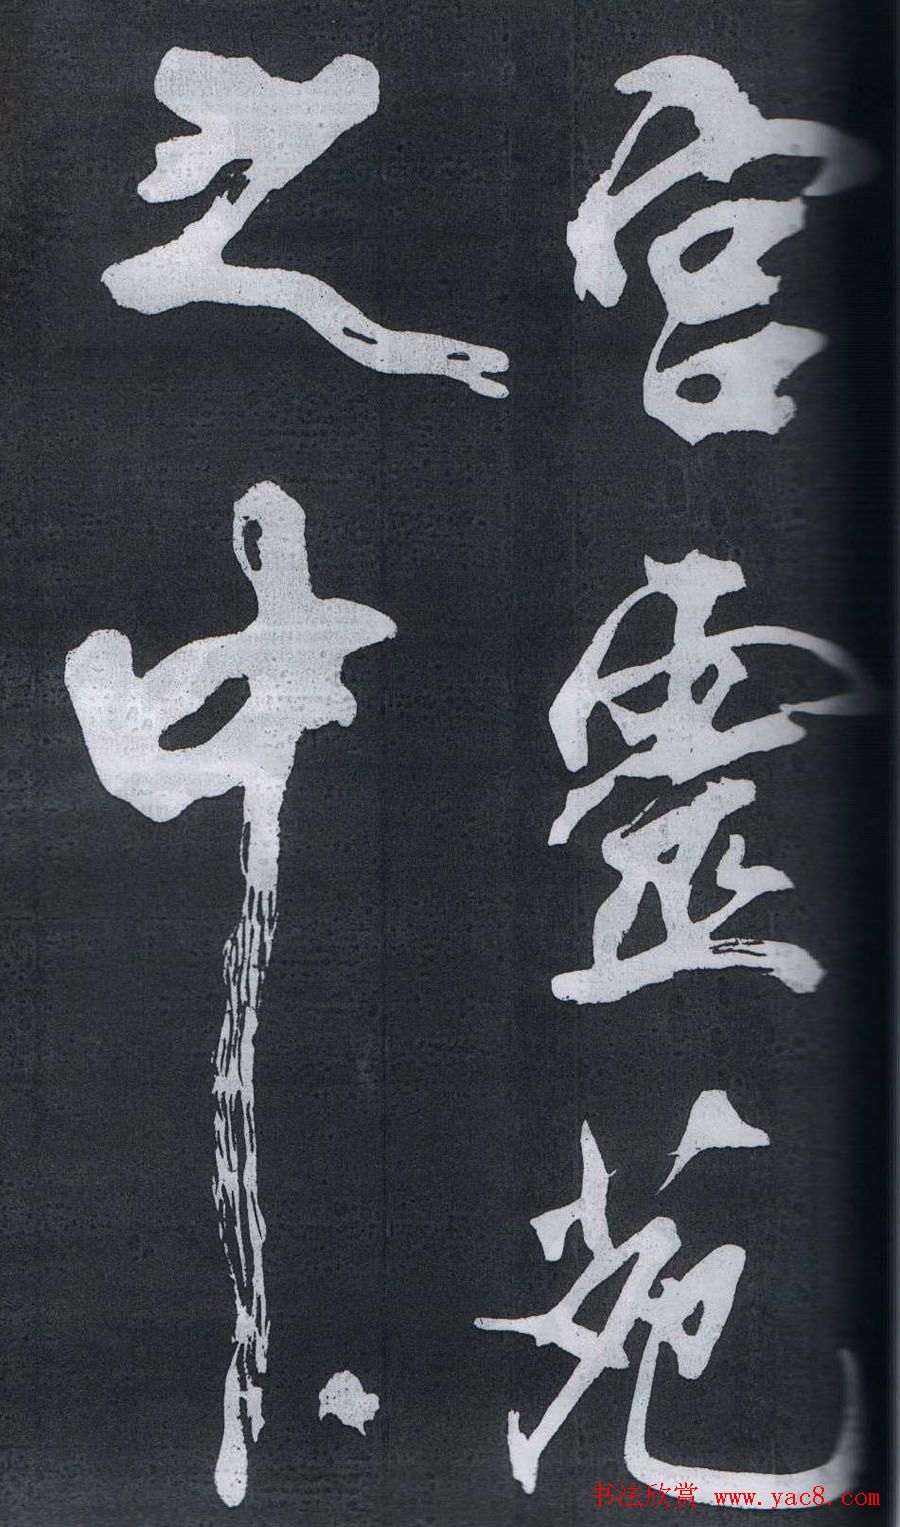 宫靈苑
之中
书法欣赏 www.yac8.com